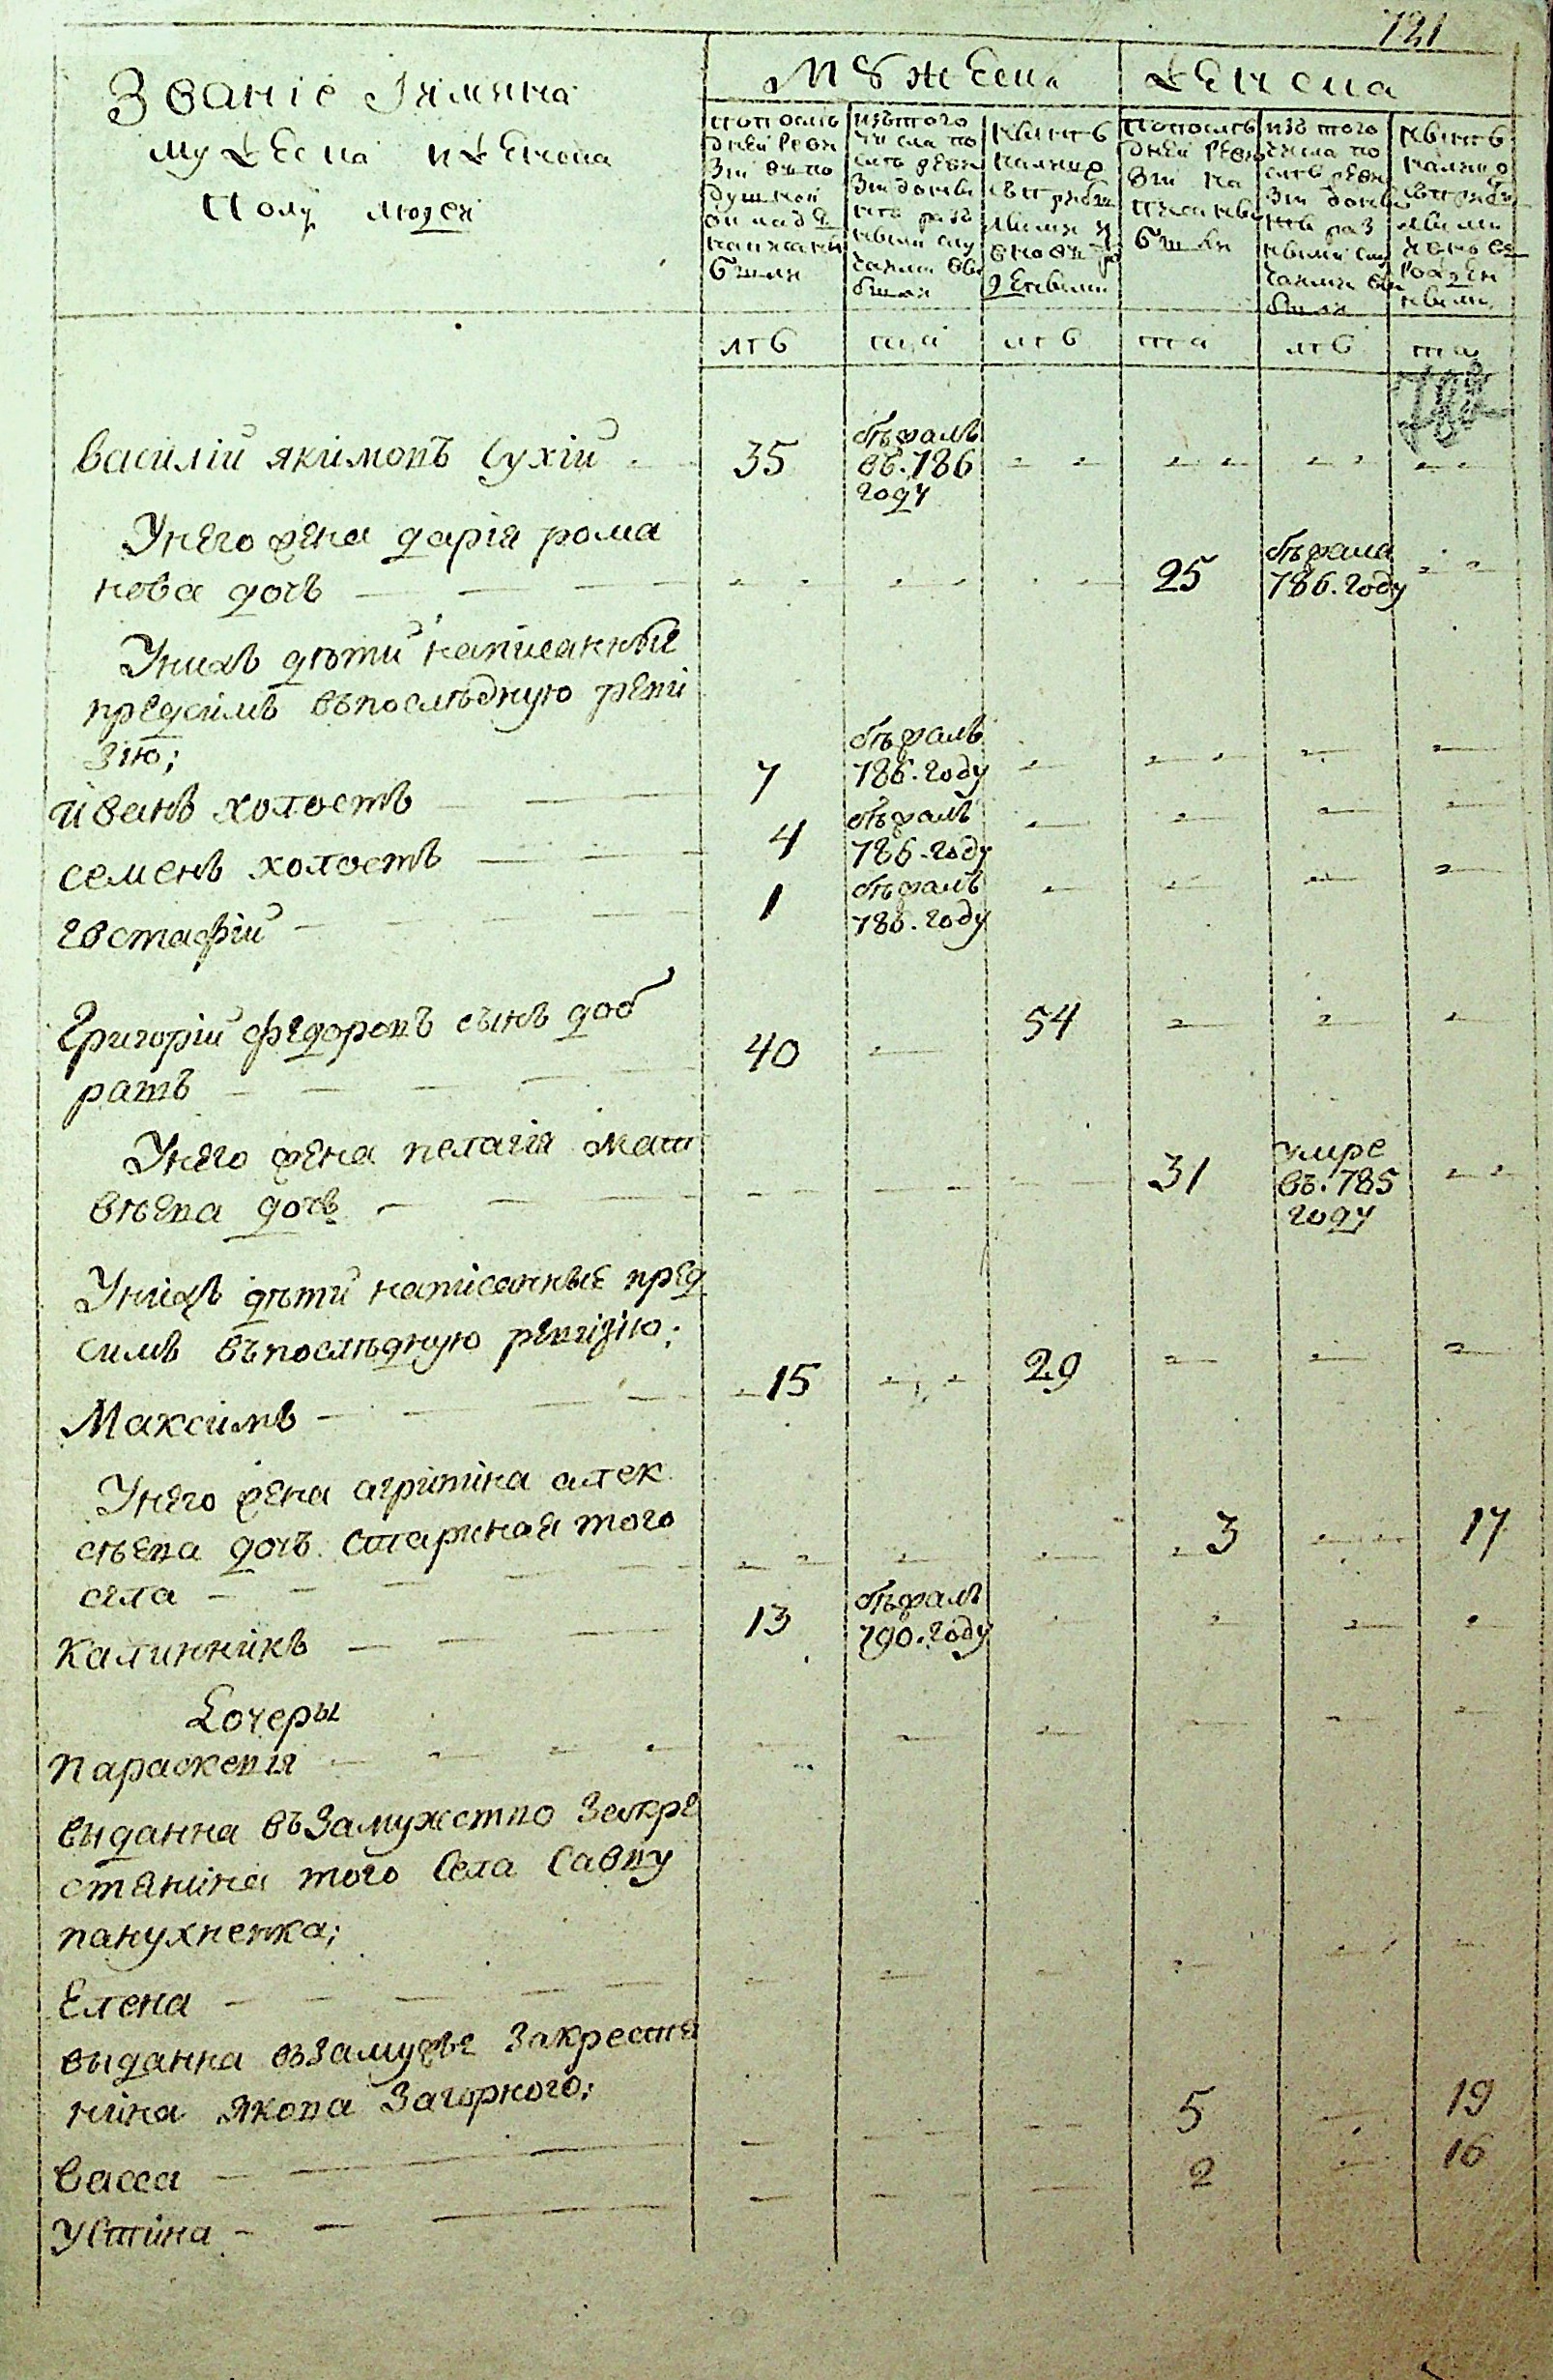 721
Званіе Іимяна
мужеска иженска
Полу людей
Мужеска
Женска
попослѣ
дней реви
зіи впо
душной
окладѣ
написаны
были
изътого
числа по
слѣ реви
зіи до нынѣ
ныѣ раз
ными слу
чаями вы
были
нынѣ
налицо
съ прибы
лыми и
вновь ро
жденными
попослѣ
дней реви
зіи на
писаны
были
изъ того
числа по
слѣ реви
зіи до нынѣ
раз
ными слу
чаями вы
были
нынѣ
налицо
съ прибы
лыми
и вновь
рожден
ными
лѣ
та
лѣ
та
лѣ
та
василій якимовъ Сухій 35 бѣжалъ
въ. 786
году
Унего жена дарія рома
нова дочь 25 бѣжала
786. году
Унихъ дѣти написанные
предсимъ въпослѣдную реви
зію;
иванъ холостъ 7 бѣжалъ
786. году
семенъ холостъ 4 бѣжалъ
786. году
евстафій 1 бѣжалъ
786. году
Григорій федоровъ сынъ доб
ратъ 40 54
Унего жена пелагія мат
вѣева дочь 31 умре
въ. 785
году
Унихъ дѣти написанные пред
симъ въпослѣдную ревизію;
Максимъ 15 29
Унего жена агрипина алек
сѣева дочь. Стариная того
села 3 17
Калинникъ 13 бѣжалъ
790. году
Дочеры
параскевія
выданна въЗамужство Закре
стянина того Села Савву
панухненка;
Елена
выданна взамужье Закрестя
нина Якова Загорного;
васса 5 19
Устина 2 16